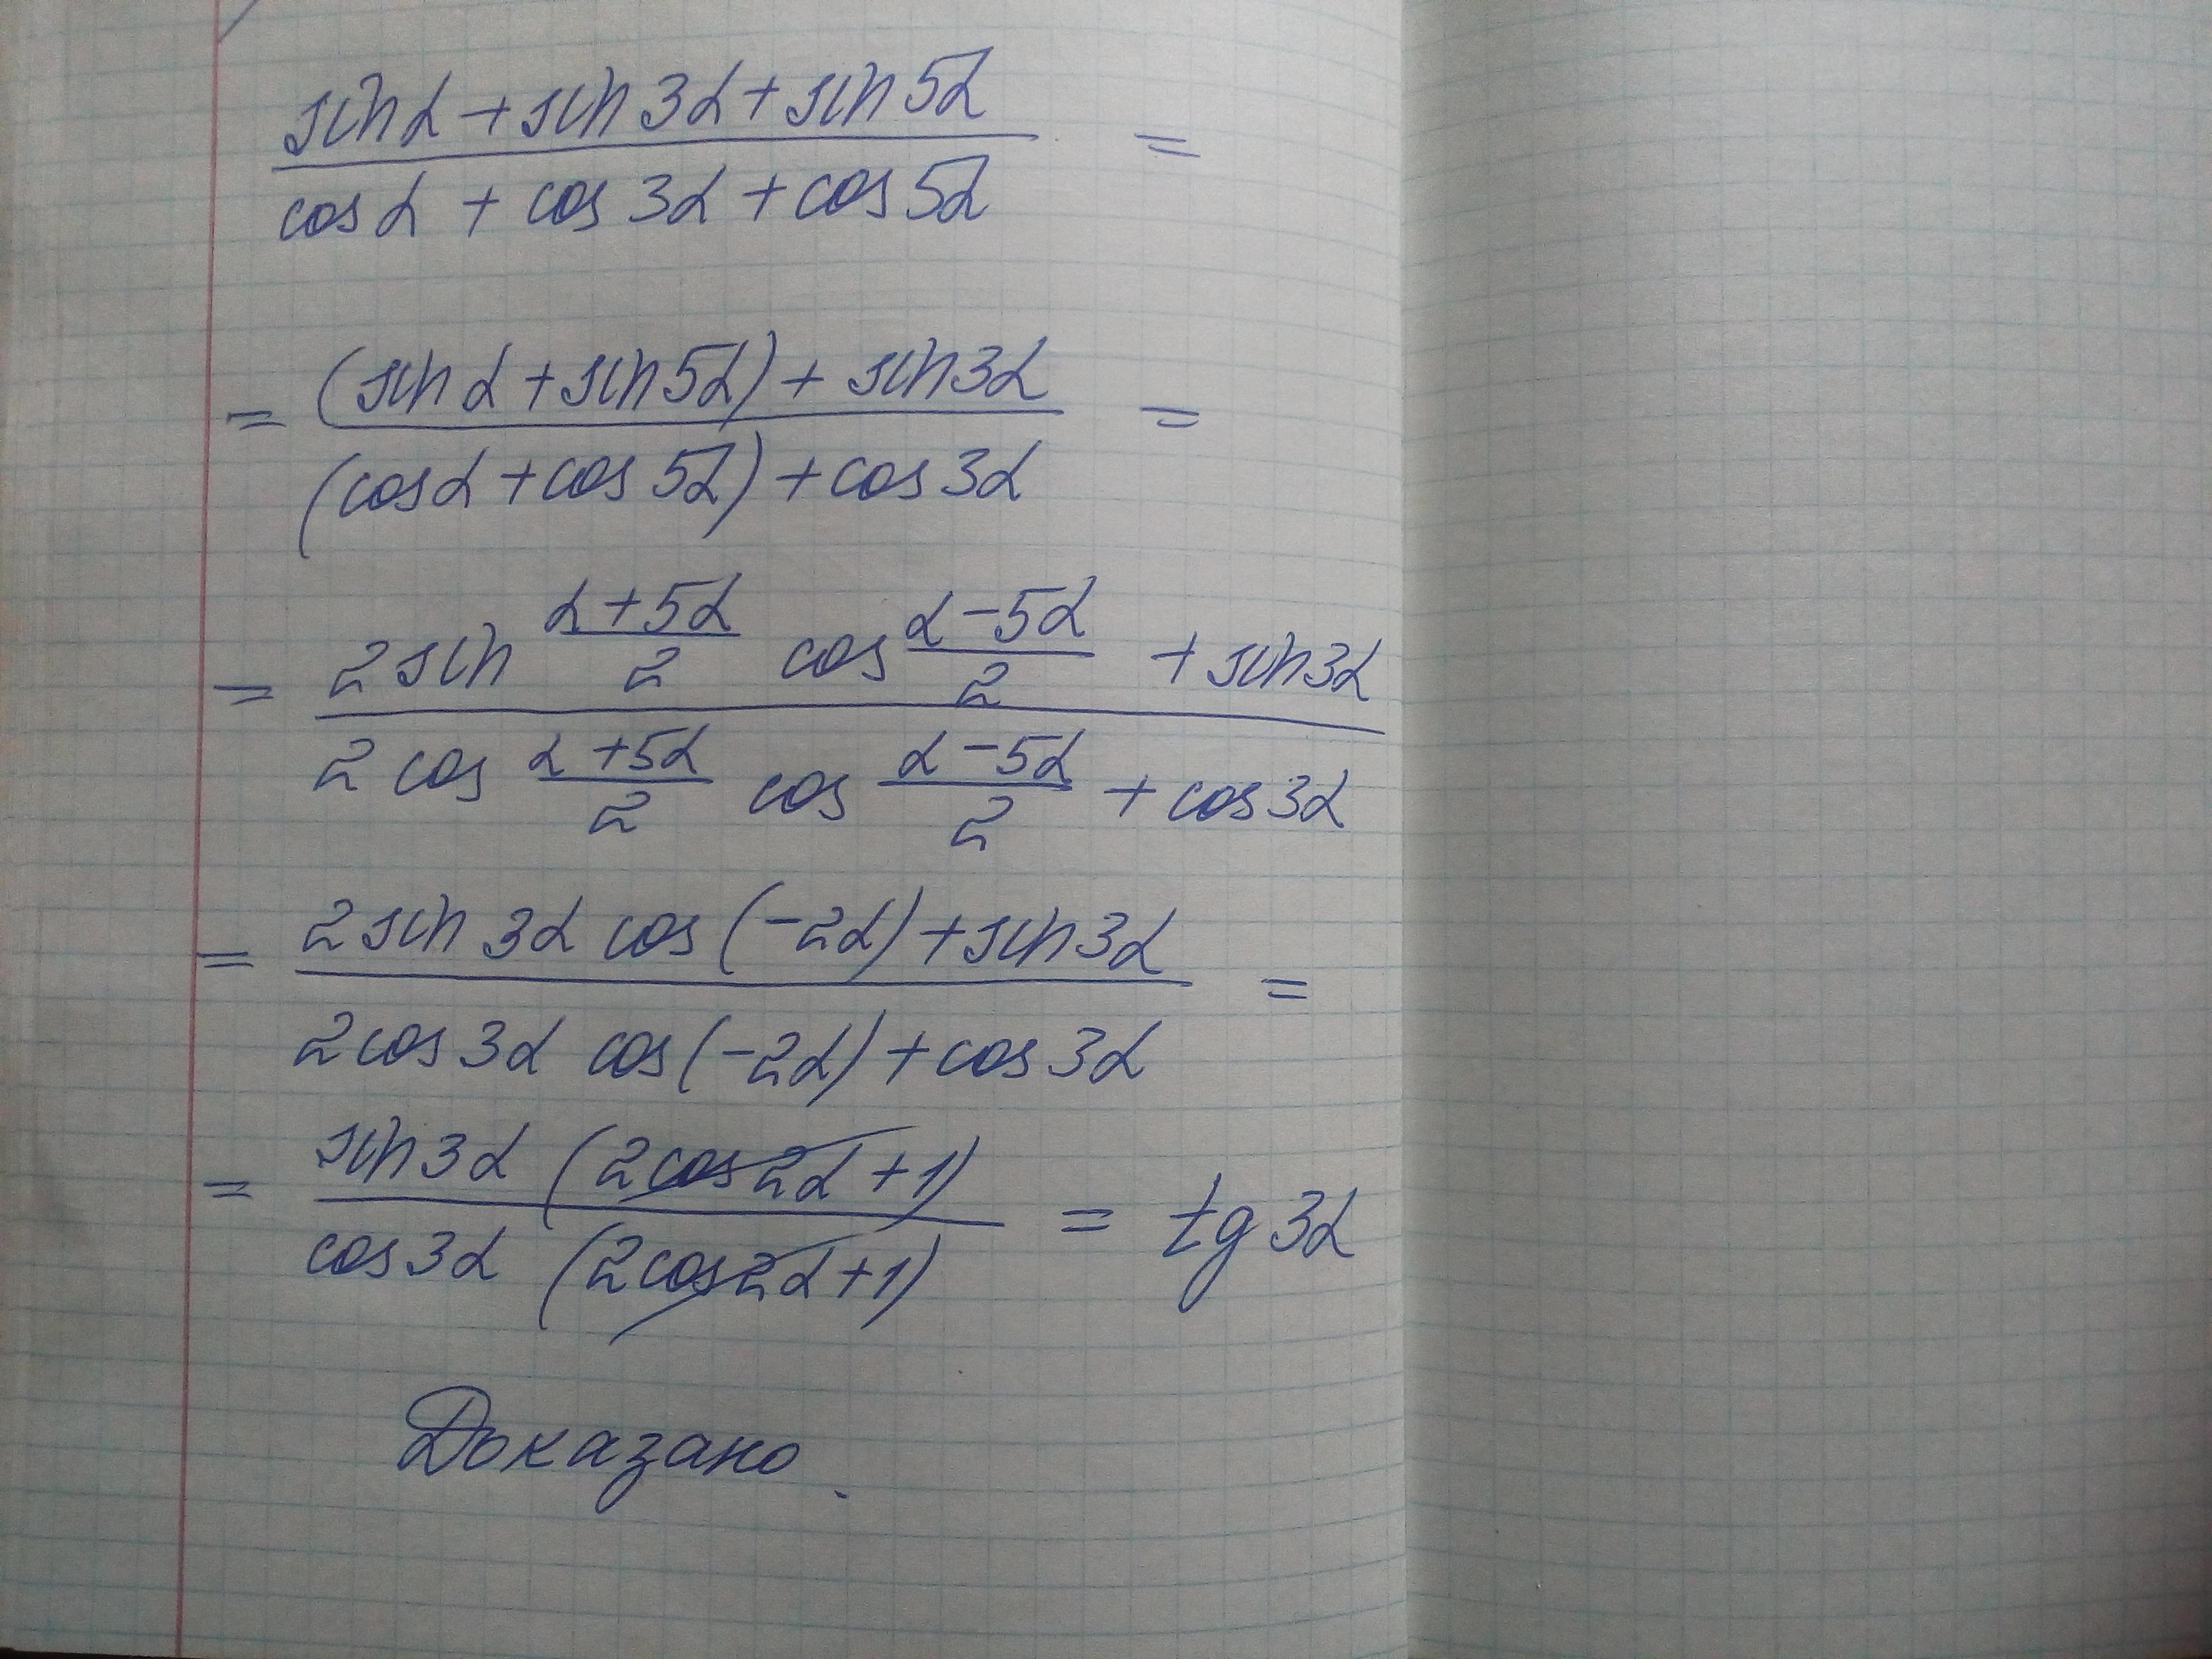 sinα + sin 3α + sin 5α
cos α + cos 3α + cos 5α
=
= (sin α + sin 5α) + sin 3α =
(cos α + cos 5α) + cos 3α
= 2 sin (α + 5α)/2 cos (α - 5α)/2 + sin 3α
2 cos (α + 5α)/2 cos (α - 5α)/2 + cos 3α
= 2 sin 3α cos (-2α) + sin 3α =
2 cos 3α cos (-2α) + cos 3α
= sin 3α (2 cos 2α + 1) = tg 3α
cos 3α (2 cos 2α + 1)
Доказано.